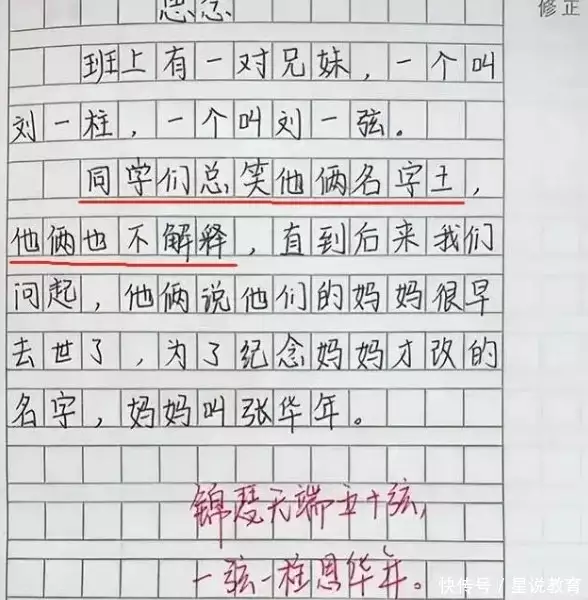 思念
修正
班上有一对兄妹，一个叫
刘一柱，一个叫刘一弦。
同学们总笑他俩名字土，
他俩也不解释，直到后来我们
问起，他俩说他们的妈妈很早
去世了，为了纪念妈妈才改的
名字，妈妈叫张华年。
锦瑟无端五十弦，
一弦一柱思华年。
快传号/星说教育